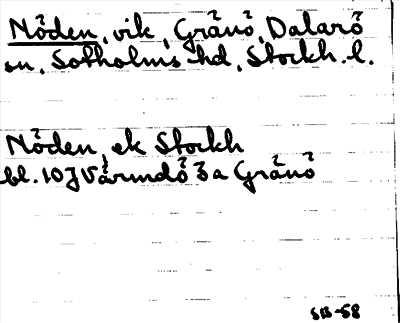 Nöden, vik, Gränö, Dalarö
sn, Sotholms hd, Stockh. l.
Nöden, ek Stockh
bl. 10 J Värmdö 3 a Gränö
SB-58